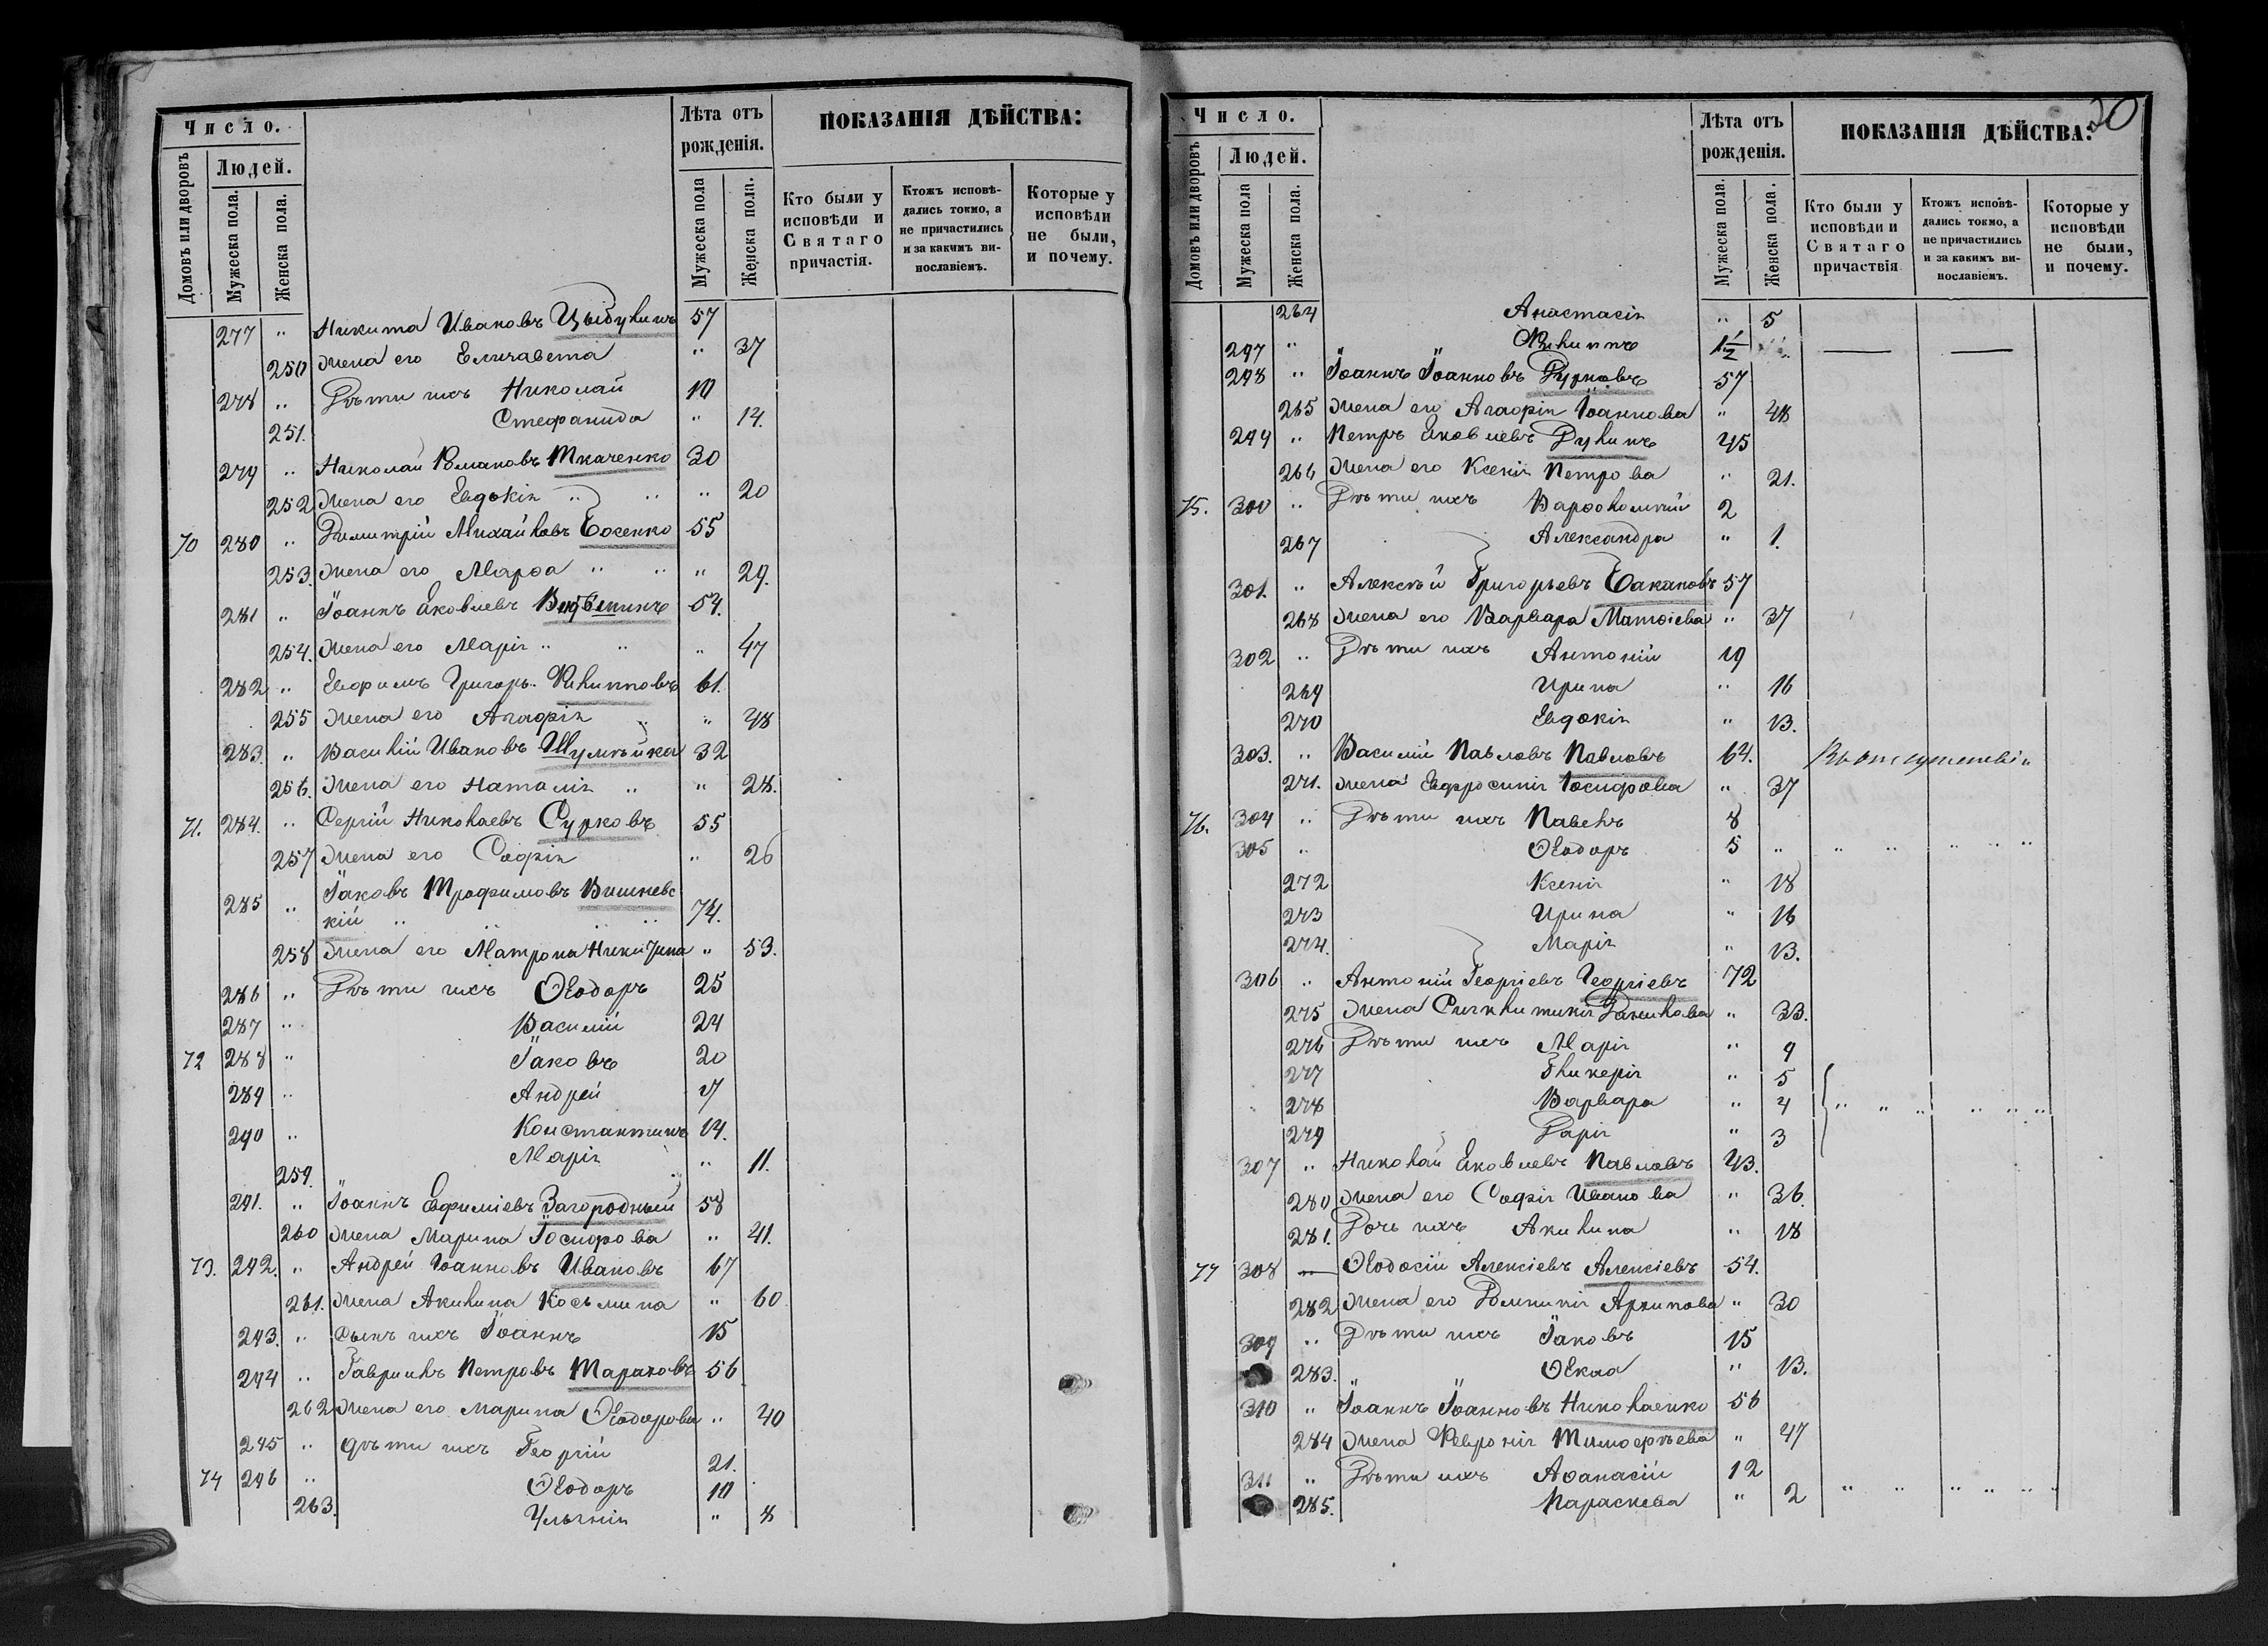 Число.
Лѣта отъ рожденія.
ПОКАЗАНІЯ ДѢЙСТВА:
Домовъ или дворовъ
Людей.
Мужеска пола.
Женска пола.
Мужеска пола
Женска пола.
Кто были у исповѣди и Святаго причастія.
Ктожъ исповѣдались токмо, а не причастились и за какимъ винославіемъ.
Которые у исповѣди не были, и почему.
277 " Никита Ивановъ 57
250 Жена его Елизавета " 37
278 " Дѣти ихъ Николай 10
251. Стефанида " 14.
279 " Николай Романовъ Ткаченко 30
252 Жена его Евдокія " " " 20
70 280 " Димитрій Михайловъ Босенко 55
253. Жена его Марѳа " " " 29.
281 " Іоаннъ Яковлевъ 54.
254. Жена его Марія " " " 47
282 " Евфимъ Григорь. Филипповъ 61.
255 Жена его Агафія " " 48
283. " Василій Ивановъ Шумѣйка 32
256. Жена его Наталія " " 28.
71. 284. " Сергій Николаевъ Сурковъ 55
257 Жена его Софія " 26
285 " Іаковъ Трофимовъ Вишневс
кій " " " 74.
258 Жена его Матрона Никитина " 53.
286 " Дѣти ихъ Ѳеодоръ 25
287 " Василій 24
72 288 " Іаковъ 20
289 " Андрей 17
290 " Константинъ 14.
259. Марія " 11.
291. " Іоаннъ Евфиміевъ Загородный 58
260 Жена Марина Іосифова " 41.
73. 292. " Андрей Іоанновъ Ивановъ 67
261. Жена Акилина Косьмина " 60
293. " Сынъ ихъ Іоаннъ 15
294 " Гавріилъ Петровъ Тарановъ 56
262 Жена его Марина Ѳеодорова " 40
295 " Дѣти ихъ Георгій 21.
74 296 " Ѳеодоръ 10
263. Ульянія " 8
20
Число.
Лѣта отъ рожденія.
ПОКАЗАНІЯ ДѢЙСТВА:
Домовъ или дворовъ
Людей.
Мужеска пола
Женска пола.
Мужеска пола.
Женска пола.
Кто были у исповѣди и Святаго причаствія
Ктожъ исповѣдались токмо, а не причастились и за какимъ винославіемъ.
Которые у исповѣди не были, и почему.
264 Анастасія " 5
297 " Филиппъ 1½ — —
298 " Іоаннъ Іоанновъ Дурновъ 57
265 Жена его Агафія Іоаннова " 48
299 " Петръ Яковлевъ Дулинъ 45
266 Жена его Ксенія Петрова " 21.
75. 300 " Дѣти ихъ Варѳоломей 2
267 Александра " 1.
301. " Алексѣй Григорьевъ Бакановъ 57
268 Жена его Варвара Матѳіева " 37
302 " Дѣти ихъ Антоній 19
269 Ирина " 16
270 Евдокія " 13.
303. " Василій Павловъ Павловъ 64. Въ отсутствіи
271. Жена Евфросинія Іосифова " 37
76. 304 " Дѣти ихъ Павелъ 8
305 " Ѳеодоръ 5 " " " " " "
272 Ксенія " 18
273 Ирина " 16
274. Марія " 13.
306 " Антоній Георгіевъ Георгіевъ 72
275 Жена Синклитикія Данилова " 33.
276 Дѣти ихъ Марія " 9
277 Гликерія " 5
278 Варвара " 4 " " " " " "
279 Дарія " 3
307 " Николай Яковлевъ Павловъ 43.
280 Жена его Софія Иванова " 36.
281. Дочь ихъ Акилина " 18
77 308 — Ѳеодосій Алексіевъ Алексіевъ 54.
282 Жена его Домникія Архипова " 30
309 " Дѣти ихъ Іаковъ 15
283. Ѳекла " 13.
310 " Іоаннъ Іоанновъ Николаенко 56
284 Жена Февронія Тимофѣева " 47
311 " Дѣти ихъ Аѳанасій 12
285. Параскева " 2 " " " " " "